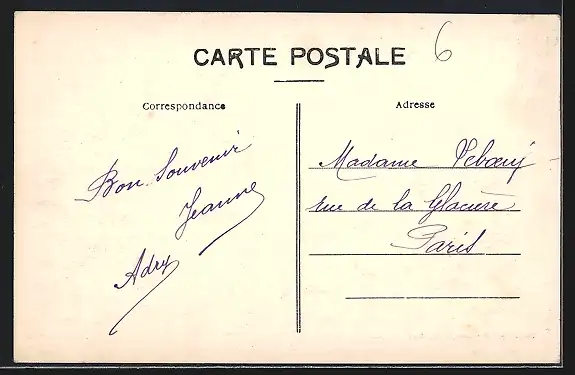 CARTE POSTALE
6
Correspondance
Adresse
Bon Souvenir
Jeanne
Adry
Madame
rue de la Glacière
Paris